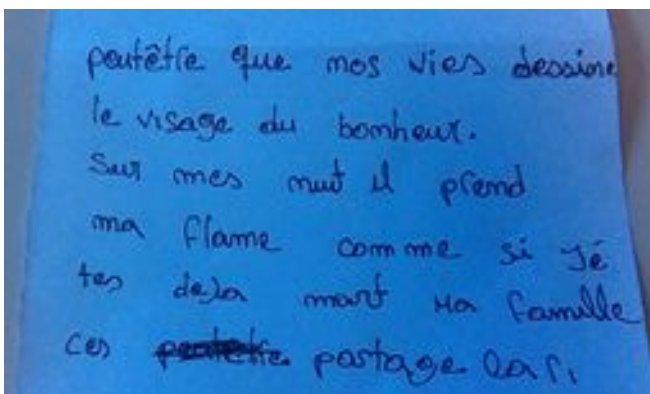 peutêtre que nos vies dessine
le visage du bonheur.
Sur mes nuit il prend
ma flame comme si jé
tes deja mort Ma famille
ces partage